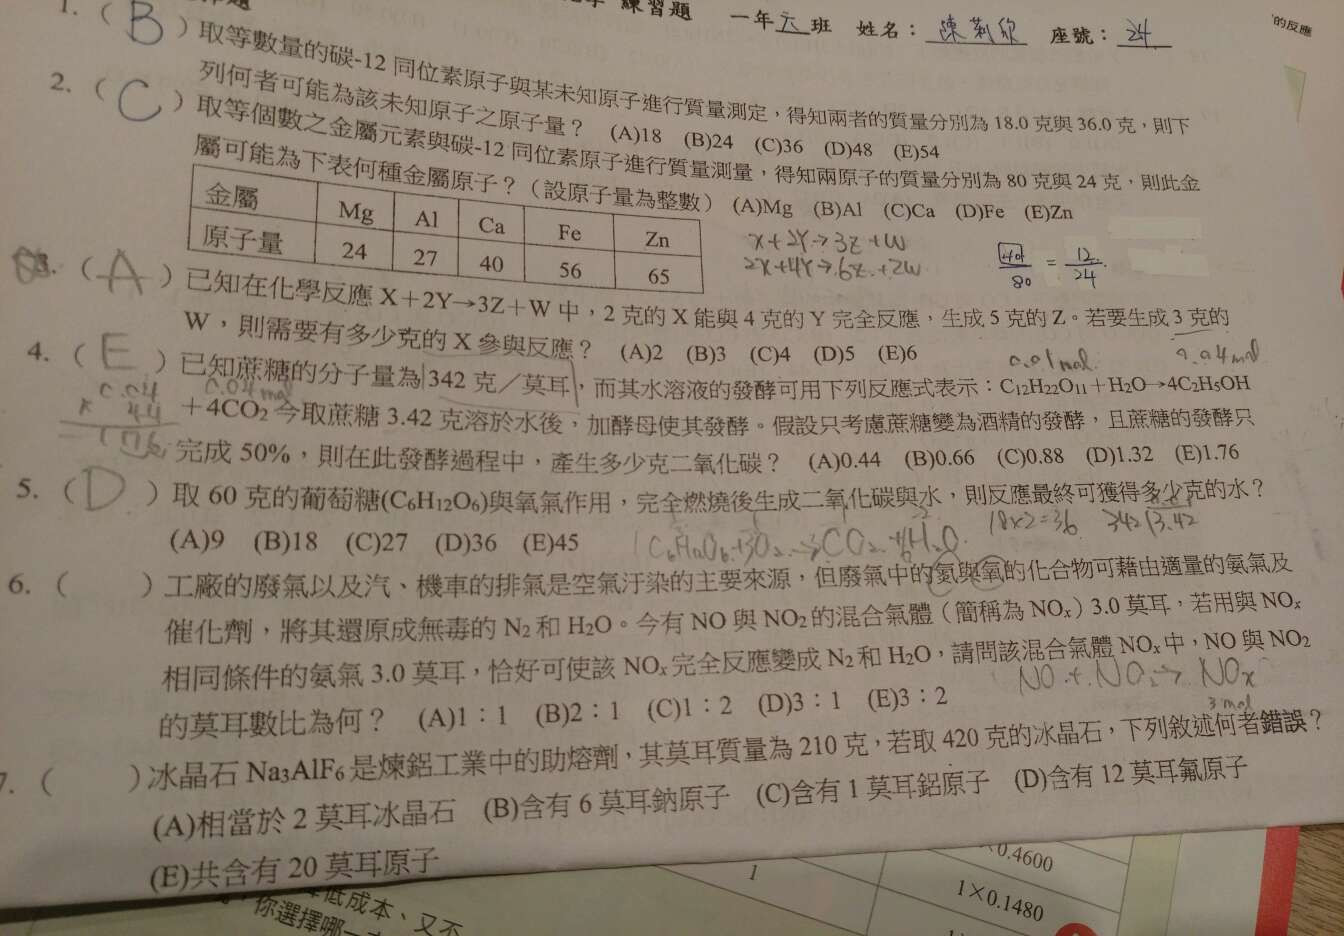 練習題 一年六班 姓名： 陳莉欣 座號： 24
的反應
1. ( B ) 取等數量的碳-12 同位素原子與某未知原子進行質量測定，得知兩者的質量分別為 18.0 克與 36.0 克，則下
列何者可能為該未知原子之原子量？ (A)18 (B)24 (C)36 (D)48 (E)54
2. ( C ) 取等個數之金屬元素與碳-12 同位素原子進行質量測量，得知兩原子的質量分別為 80 克與 24 克，則此金
屬可能為下表何種金屬原子？（設原子量為整數） (A)Mg (B)Al (C)Ca (D)Fe (E)Zn
金屬 Mg Al Ca Fe Zn
原子量 24 27 40 56 65
X+2Y→3Z+W
2X+4Y→6Z+2W
40/80 = 12/24
3. ( A ) 已知在化學反應 X＋2Y→3Z＋W 中，2 克的 X 能與 4 克的 Y 完全反應，生成 5 克的 Z。若要生成 3 克的
W，則需要有多少克的 X 參與反應？ (A)2 (B)3 (C)4 (D)5 (E)6
0.01mol 0.04mol
4. ( E ) 已知蔗糖的分子量為 342 克／莫耳，而其水溶液的發酵可用下列反應式表示：C₁₂H₂₂O₁₁＋H₂O→4C₂H₅OH
0.04 0.04mol
＋4CO₂ 今取蔗糖 3.42 克溶於水後，加酵母使其發酵。假設只考慮蔗糖變為酒精的發酵，且蔗糖的發酵只
× 44
1.76
完成 50%，則在此發酵過程中，產生多少克二氧化碳？ (A)0.44 (B)0.66 (C)0.88 (D)1.32 (E)1.76
5. ( D ) 取 60 克的葡萄糖(C₆H₁₂O₆)與氧氣作用，完全燃燒後生成二氧化碳與水，則反應最終可獲得多少克的水？
18×2=36 342 3.42
(A)9 (B)18 (C)27 (D)36 (E)45
6. ( ) 工廠的廢氣以及汽、機車的排氣是空氣汙染的主要來源，但廢氣中的氮與氧的化合物可藉由適量的氨氣及
催化劑，將其還原成無毒的 N₂ 和 H₂O。今有 NO 與 NO₂ 的混合氣體（簡稱為 NOₓ）3.0 莫耳，若用與 NOₓ
相同條件的氨氣 3.0 莫耳，恰好可使該 NOₓ 完全反應變成 N₂ 和 H₂O，請問該混合氣體 NOₓ 中，NO 與 NO₂
的莫耳數比為何？ (A)1：1 (B)2：1 (C)1：2 (D)3：1 (E)3：2
NO + NO₂ → NOx
3mol
7. ( ) 冰晶石 Na₃AlF₆ 是煉鋁工業中的助熔劑，其莫耳質量為 210 克，若取 420 克的冰晶石，下列敘述何者錯誤？
(A)相當於 2 莫耳冰晶石 (B)含有 6 莫耳鈉原子 (C)含有 1 莫耳鋁原子 (D)含有 12 莫耳氟原子
(E)共含有 20 莫耳原子
低成本、又不
你選擇哪一
1
×0.4600
1×0.1480